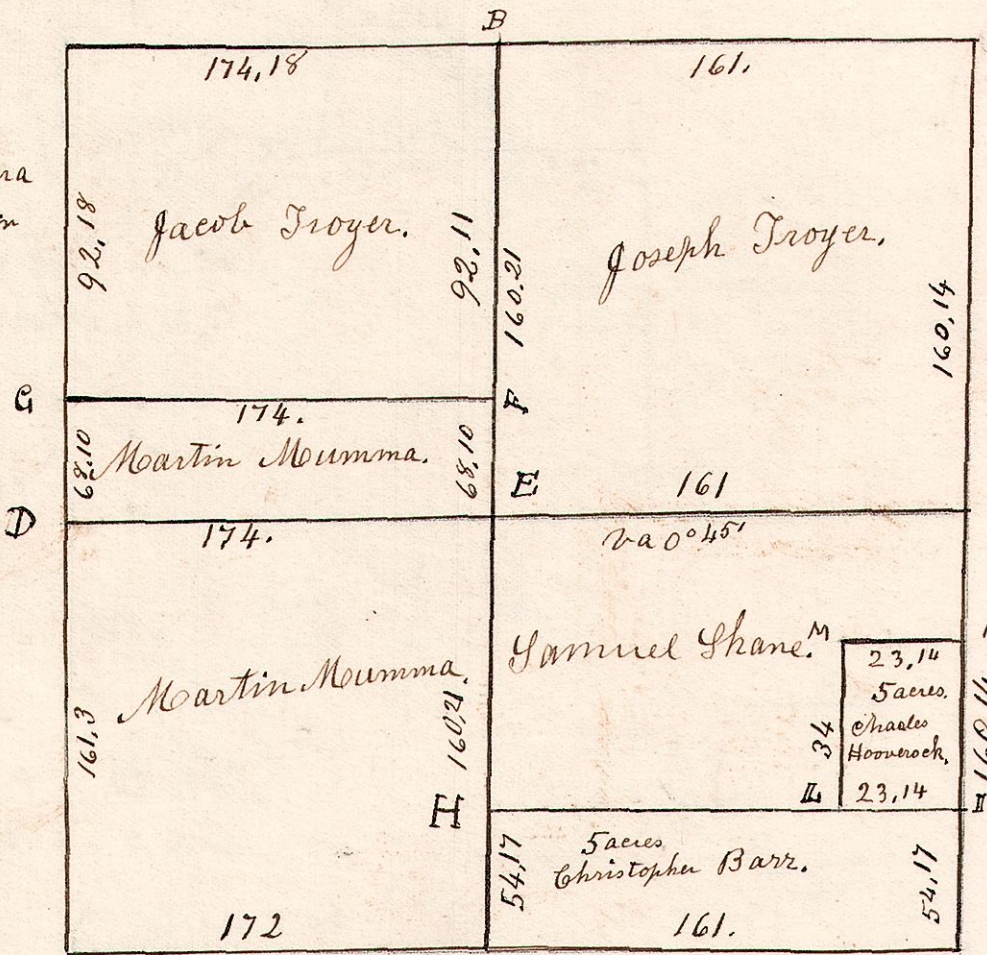 B
174,18
161.
92,18
Jacob Troyer.
92,11
160.21
Joseph Troyer.
160,14
G
174.
F
68,10
Martin Mumma.
68,10
E
161
D
174.
va 0° 45'
Samuel Shane.
M
23,14
5 acres.
Chaales
Hooverock.
23,14
34
L
I
160,14
161,3
Martin Mumma.
160,21
H
5 acres
Christopher Barr.
54,17
54,17
172
161.